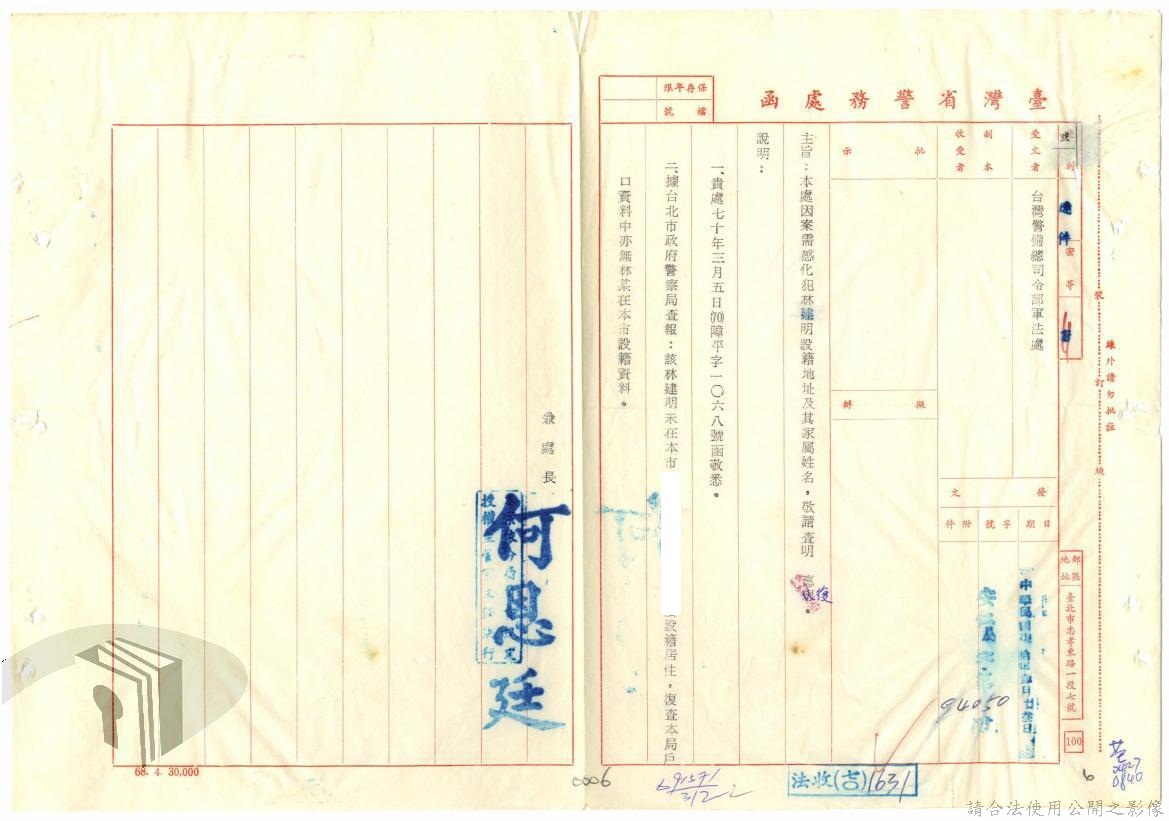 臺灣省警務處函
保存年限
檔號
號
別
速件
密等
密
受文者
台灣警備總司令部軍法處
副本
收受者
批示
擬辦
發文
日期
字號
附件
94050
郵區
地址
臺北市忠孝東路一段七號
100
主旨：本處因案需感化犯林建明設籍地址及其家屬姓名，敬請查明
復
說明：
一、貴處七十年三月五日(70)障平字一〇六八號函敬悉。
二、據台北市政府警察局查報：該林建明未在本市
設籍居住，復查本局戶
口資料中亦無林某在本市設籍資料。
兼處長
何恩廷
裝
訂
線
線外請勿批註
68. 4. 30,000
0006
法收(吉)1631
6
0840
請合法使用公開之影像